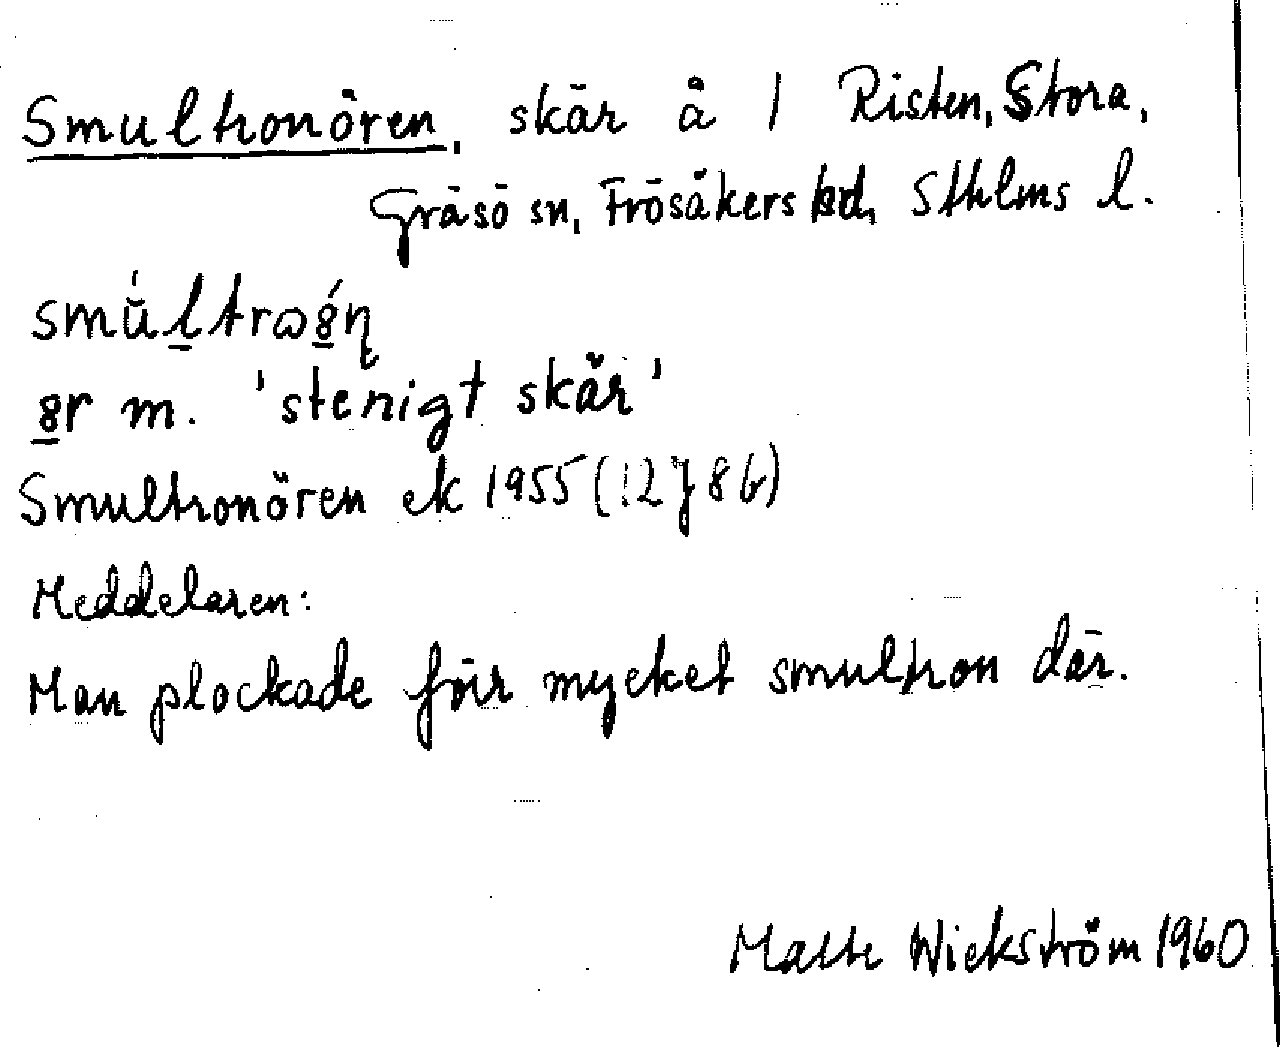 Smultronören, skär å 1 Risten, Stora,
Gräsö sn, Frösåkers hd, Sthlms l.
smúltrω8́ņ
8r m. 'stenigt skär'
Smultronören ek 1955 (12 J 8 b)
Meddelaren:
Man plockade förr mycket smultron där.
Malte Wickström 1960